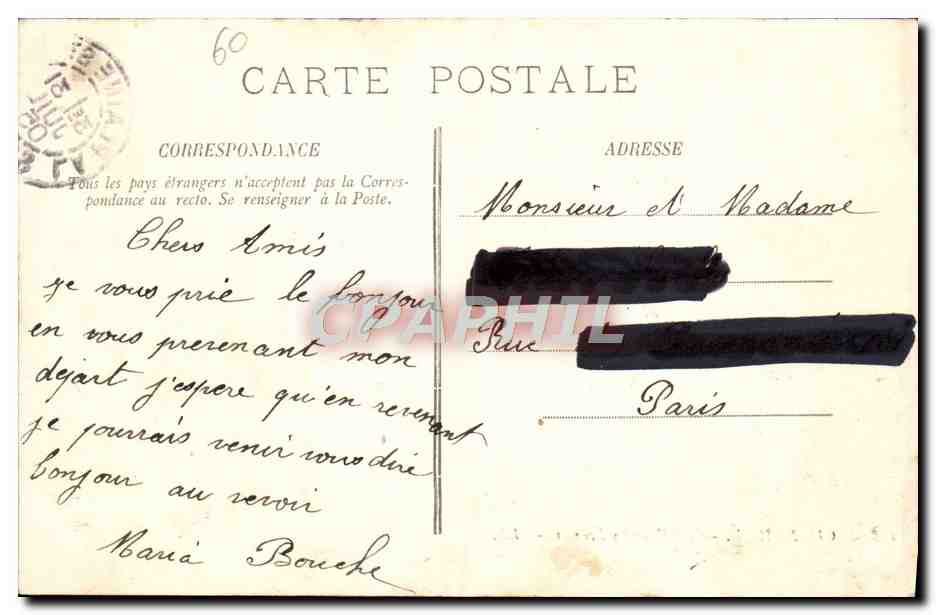 60
CARTE POSTALE
CORRESPONDANCE
Tous les pays étrangers n'acceptent pas la Corres-
pondance au recto. Se renseigner à la Poste.
Chers Amis
je vous prie le bonjour
en vous prevenant mon
dèpart j'espere qu'en revenant
je pourrais venir vous dire
bonjour au revoir
Maria Bouche
ADRESSE
Monsieur et Madame
Rue
Paris
CPAPHIL